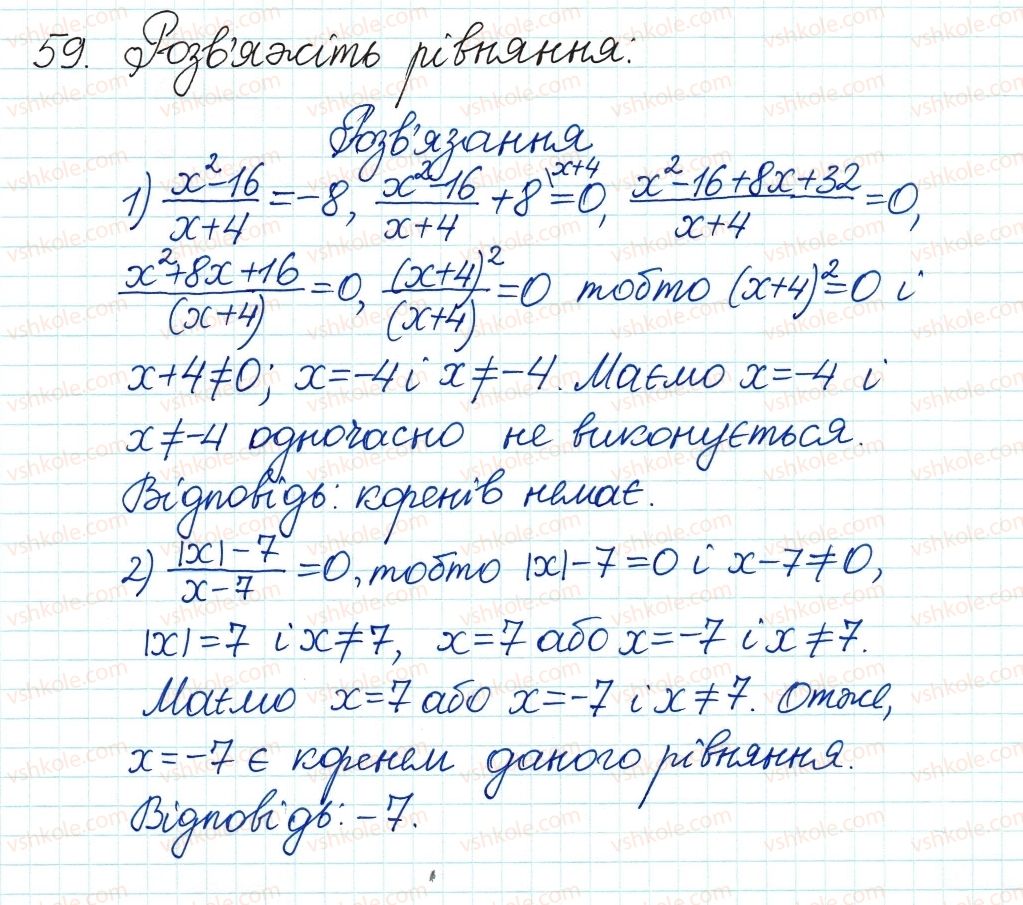 59. Розв'яжіть рівняння:
Розв'язання
1) (x²-16)/(x+4) = -8, (x²-16)/(x+4) + 8\^(x+4) = 0, (x²-16+8x+32)/(x+4) = 0,
(x²+8x+16)/(x+4) = 0, (x+4)²/(x+4) = 0 тобто (x+4)²=0 і
x+4≠0; x=-4 і x≠-4. Маємо x=-4 і
x≠-4 одночасно не виконується.
Відповідь: коренів немає.
2) (|x|-7)/(x-7) = 0, тобто |x|-7=0 і x-7≠0,
|x|=7 і x≠7, x=7 або x=-7 і x≠7.
Маємо x=7 або x=-7 і x≠7. Отже,
x=-7 є коренем даного рівняння.
Відповідь: -7.